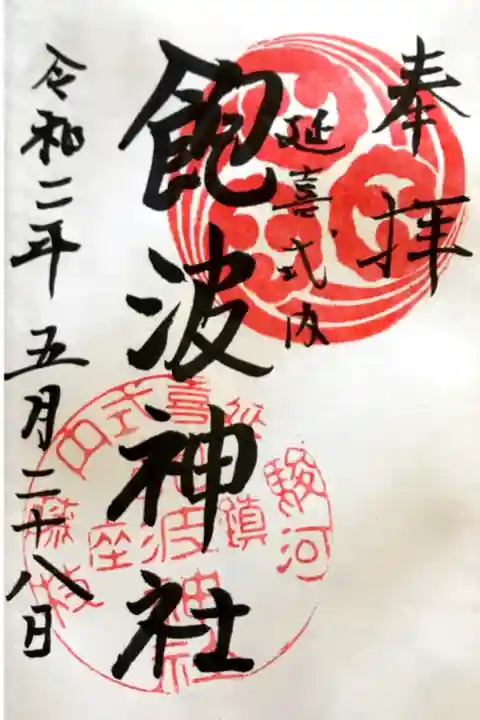 奉拝
延喜式内
飽波神社
令和二年五月二十八日
駿河
延喜式内
鎮座
藤枝
飽波神社